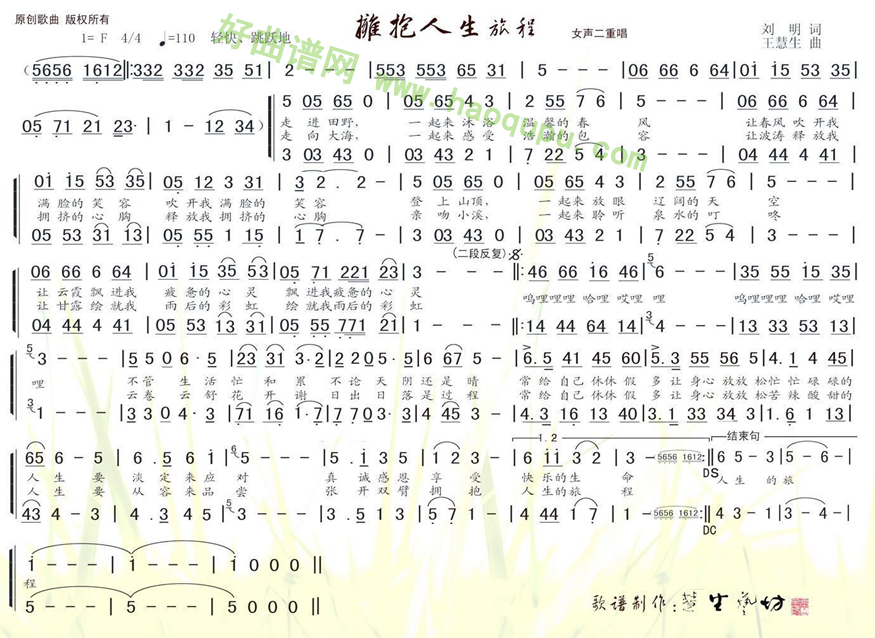 原创歌曲 版权所有
拥抱人生旅程
女声二重唱
刘 明 词
王慧生 曲
1= F 4/4 ♩=110 轻快、跳跃地
好曲谱网
www.haoqupu.com
(5656 1612 ‖: 332 332 35 51 | 2 - - - | 553 553 65 31 | 5 - - - | 06 66 6 64 | 01 15 53 35 |
05 71 21 23· | 1 - 12 34 )
5 05 65 0 | 05 65 4 3 | 2 55 7 6 | 5 - - - | 06 66 6 64 |
走 进 田野, 一起来 沐 浴 温 馨的 春 风 让春风 吹 开我
走 向 大海, 一起来 感 受 浩 瀚的 包 容 让波涛 释 放我
3 03 43 0 | 03 43 2 1 | 7 22 5 4 | 3 - - - | 04 44 4 41 |
01 15 53 35 | 05 12 3 31 | 3 · 2 2 · - | 5 05 65 0 | 05 65 4 3 | 2 55 7 6 | 5 - - - |
满 脸的 笑 容 吹 开我 满 脸的 笑 容 登 上 山顶, 一起来 放 眼 辽 阔的 天 空
拥 挤的 心 胸 释 放我 拥 挤的 心 胸 亲 吻 小溪, 一起来 聆 听 泉 水的 叮 咚
05 53 31 13 | 05 55 1 15 | 1 7 · 7 · - | 3 03 43 0 | 03 43 2 1 | 7 22 5 4 | 3 - - - |
(二段反复)
06 66 6 64 | 01 15 35 53 | 05 71 221 23 | 3 - - - ‖: 46 66 16 46 | 6 - - - | 35 55 15 35 |
让 云霞 飘 进我 疲 惫的 心 灵 飘 进我 疲惫的 心 灵 呜哩哩哩 哈哩 哎哩 哩 呜哩哩哩 哈哩 哎哩
让 甘露 绘 就我 雨 后的 彩 虹 绘 就我 雨后的 彩 虹
04 44 4 41 | 05 53 13 31 | 05 55 771 21 | 1 - - - ‖: 14 44 64 14 | 4 - - - | 13 33 53 13 |
3 - - - | 5 5 0 6 · 5 | 23 31 3·2 | 2 20 5 5 | 6 67 5 - | 6. 5 41 45 60 | 5. 3 55 56 5 | 4. 1 4 45 |
哩 不管 生 活 忙 和 累 不 论 天 阴 还是 晴 常 给 自己 休休 假 多 让 身心 放放 松 忙 忙 碌 碌的
云卷 云 舒 花 开 谢 日 出 日 落是 过 程 常 给 自己 休休 假 多 让 身心 放放 松 苦 辣 酸 甜的
1 - - - | 3 3 0 4 · 3 | 71 16 1·7 | 7 70 3 3 | 4 45 3 - | 4. 3 16 13 40 | 3. 1 33 34 3 | 1. 6 1 13 |
1.2
结束句
65 6 - 5 | 5 · 6 12 | 6 5 - - | 5 · 1 35 | 1 2 3 - | 6 11 3 2 | 3 - 5656 1612 :‖ 6 5 - 3 | 5 - 6 - |
人 生 要 淡 定 来 应 对 真 诚 感 恩 享 受 快 乐的 生 命 人 生 的 旅
人 生 要 从 容 来 品 尝 张 开 双 臂 拥 抱 人 生的 旅 程
DS
43 4 - 3 | 4 · 3 45 | 5 3 - - | 3 · 5 13 | 5 7 1 - | 4 44 1 7 | 1 - 5656 1612 :‖ 4 3 - 1 | 3 - 4 - |
DC
1 - - - | 1 - - - | 1 0 0 0 ‖
程
5 - - - | 5 - - - | 5 0 0 0 ‖
歌谱制作:慧生艺坊